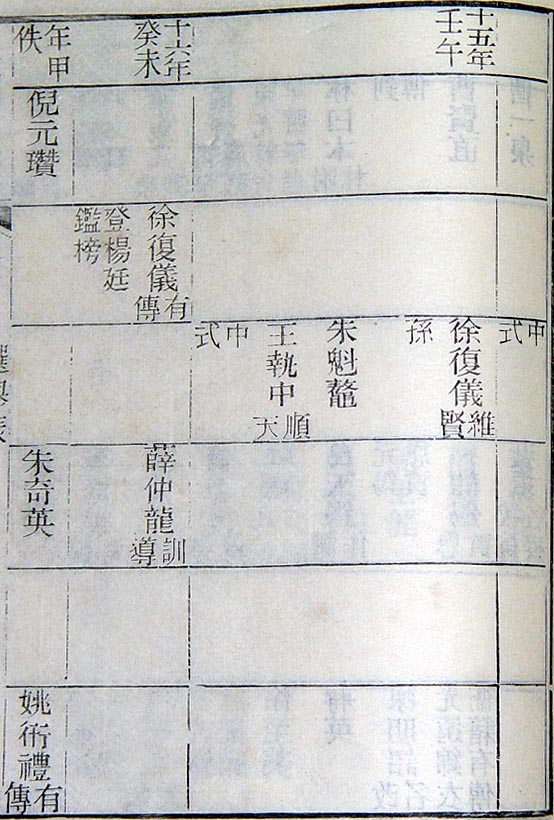 十五年
壬午
中式
徐復儀維賢
孫
朱魁鼇
王執中順天
中式
十六年
癸未
徐復儀有傳
登楊廷
鑑榜
薛仲龍訓導
年甲
佚
倪元瓚
朱奇英
姚術禮有傳